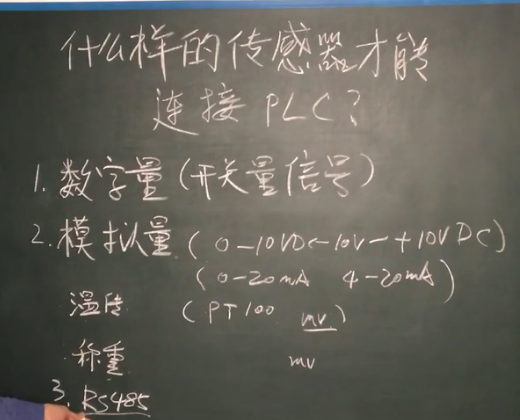 什么样的传感器才能
连接 PLC?
1. 数字量(开关量信号)
2. 模拟量 (0-10VDC -10V-+10VDC)
(0-20mA 4-20mA)
温度 (PT100 mv)
称重 mv
3. RS485